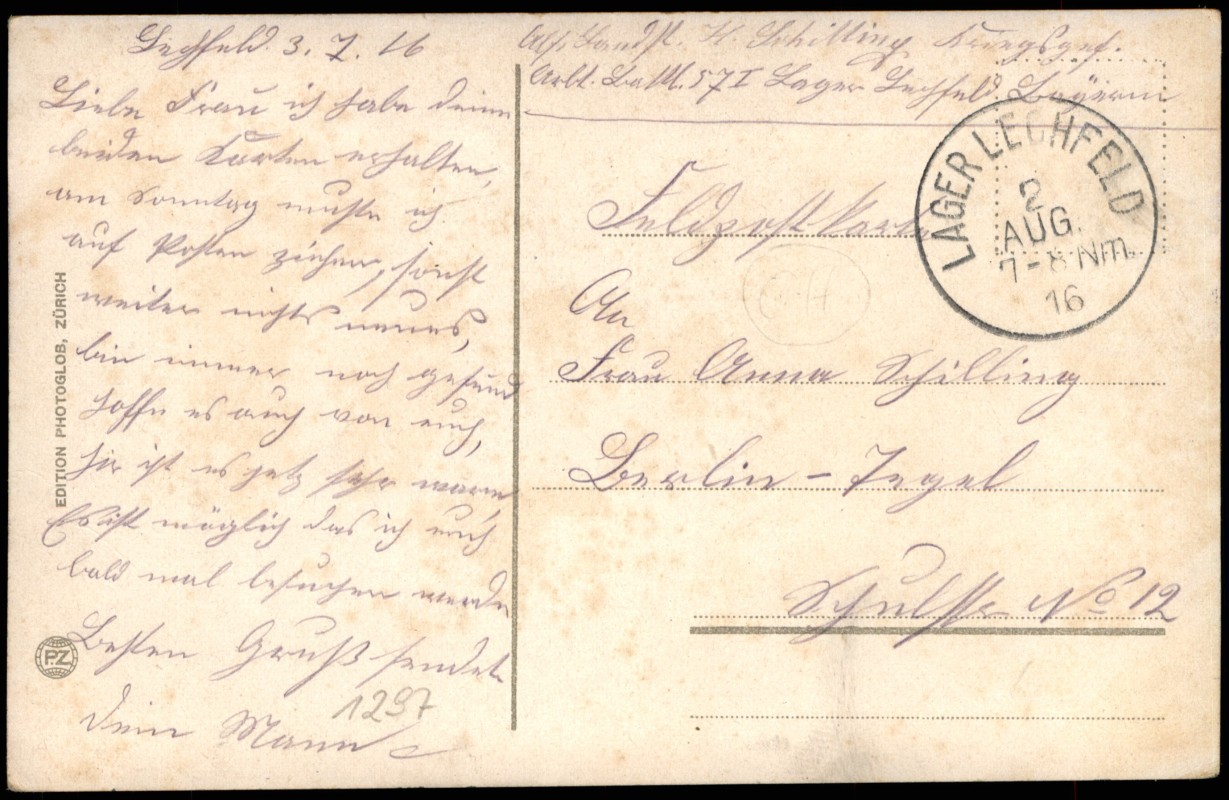 Lechfeld. 3. 7. 16
Liebe Frau ich habe deine
beiden Karten erhalten,
am Sonntag muste ich
auf Posten ziehen, sonst
weiter nichts neues,
bin immer noch gesund
hoffe es auch von euch,
hir ist es jetz sehr warm
Es ist möglich das ich euch
bald mal besuchen werde
Besten Gruß sendet
dein Mann
1297
EDITION PHOTOGLOB, ZÜRICH
PZ
Abs. Landst. H. Schilling Kriegsgef.
Arbt. Batl. 57 I Lager Lechfeld. Bayern
LAGER LECHFELD
2
AUG.
7-8 Nm.
16
Feldpostkarte
An
Frau Anna Schilling
Berlin-Tegel
Schulstr No 12